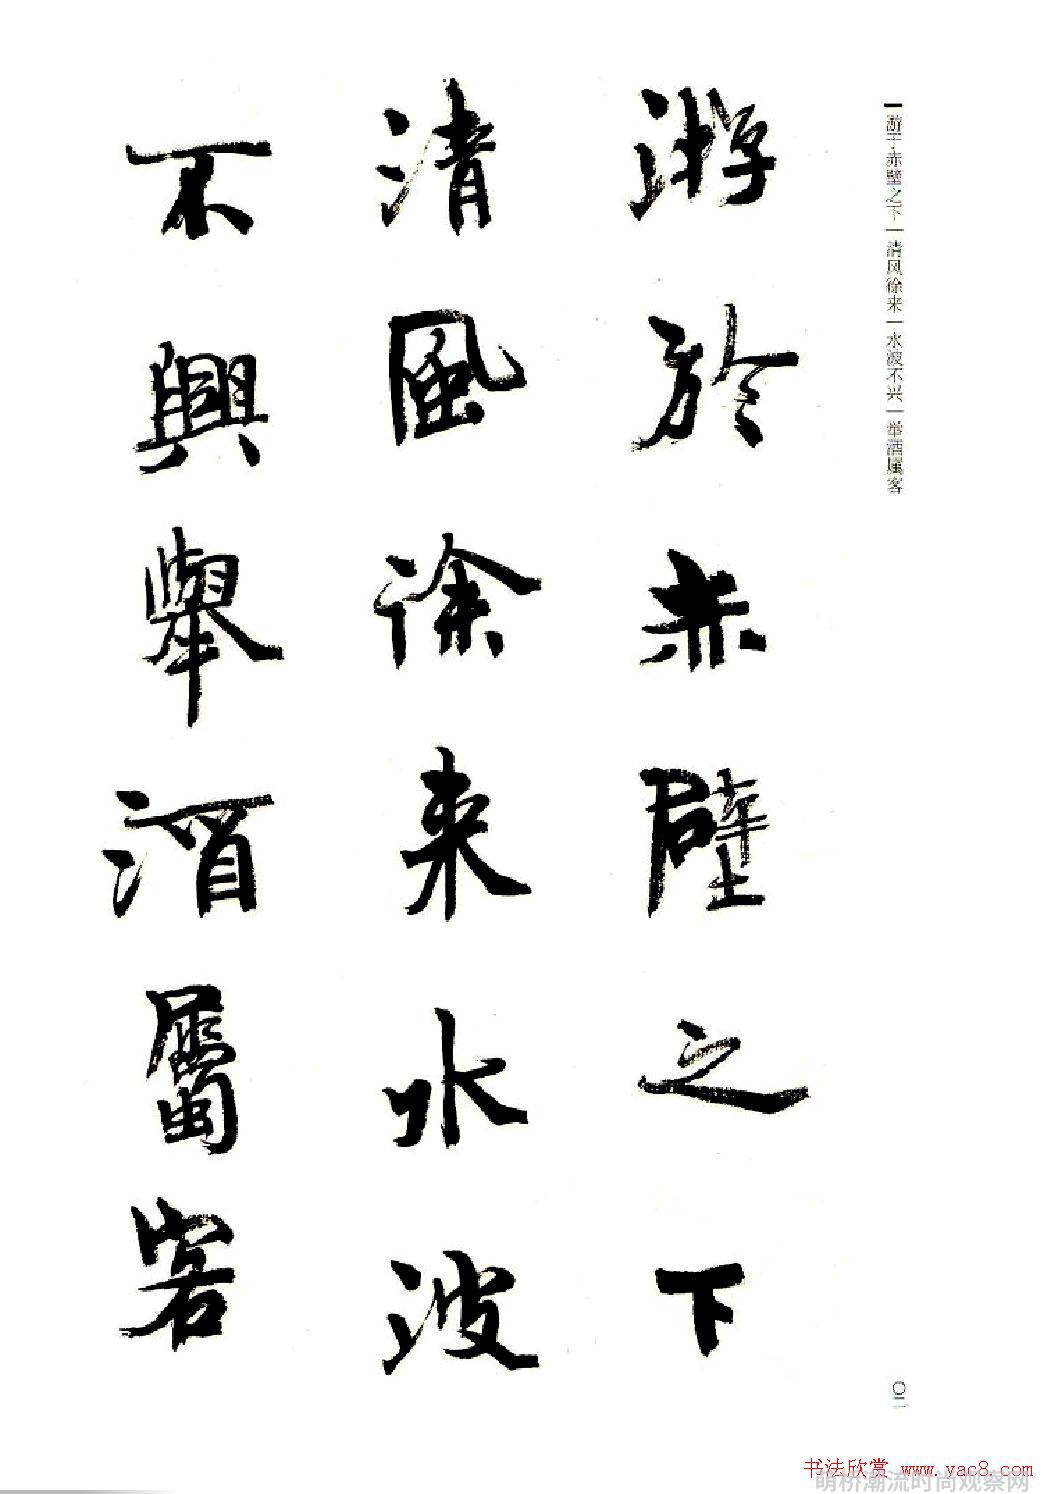 游于赤壁之下|清风徐来|水波不兴|举酒属客
游於赤壁之下
清風徐来水波
不興舉酒屬客
〇二
书法欣赏 www.yac8.com
萌桥潮流时尚观察网